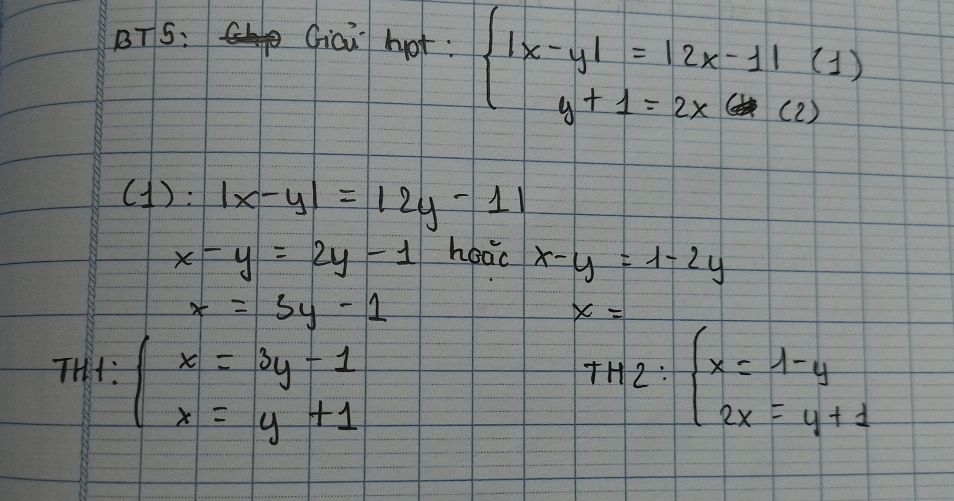 BT5: Giải hpt: { |x - y| = |2x - 1| (1)
y + 1 = 2x (2)
(1): |x - y| = |2y - 1|
x - y = 2y - 1 hoặc x - y = 1 - 2y
x = 3y - 1 x =
TH1: { x = 3y - 1 TH2: { x = 1 - y
x = y + 1 2x = y + 1